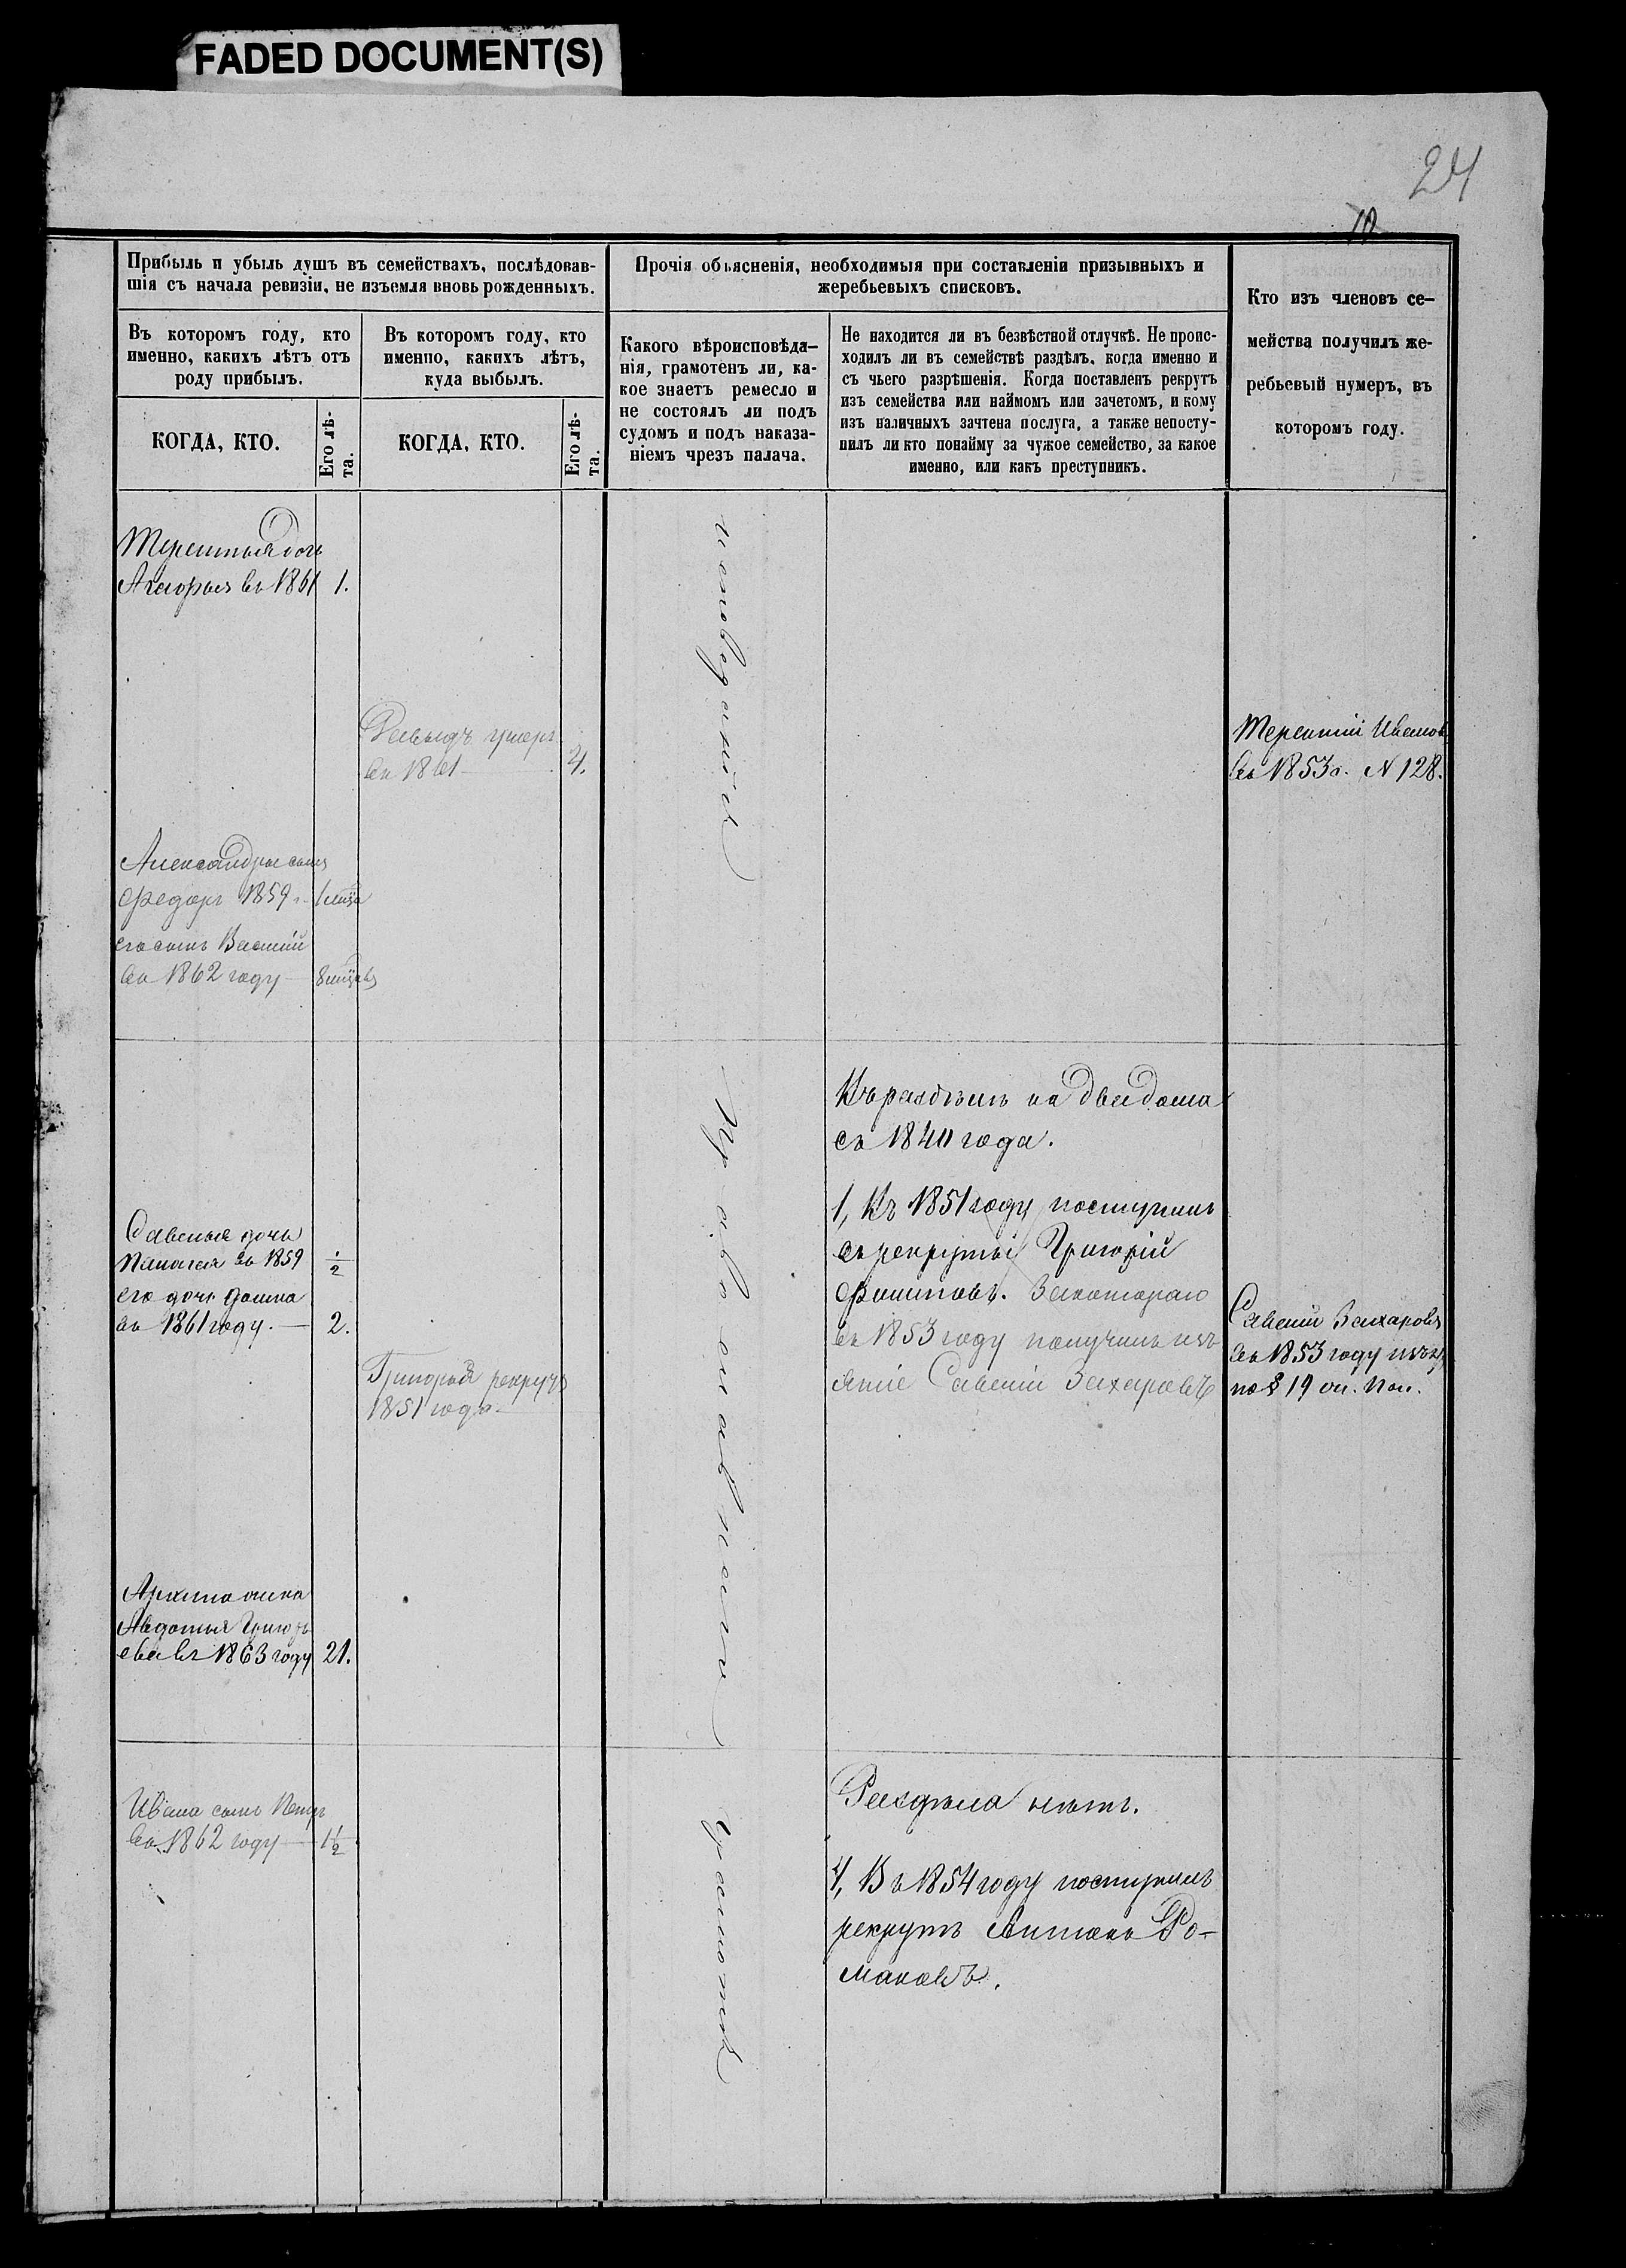 FADED DOCUMENT(S)
24
10
Прибыль и убыль душъ въ семействахъ, послѣдовав-
шія съ начала ревизіи, не изъемля вновь рожденныхъ.
Въ которомъ году, кто
именно, какихъ лѣтъ отъ
роду прибылъ.
КОГДА, КТО.
Его лѣ-
та.
Въ которомъ году, кто
именно, какихъ лѣтъ,
куда выбылъ.
КОГДА, КТО.
Его лѣ-
та.
Прочія объясненія, необходимыя при составленіи призывныхъ и
жеребьевыхъ списковъ.
Какого вѣроисповѣда-
нія, грамотенъ ли, ка-
кое знаетъ ремесло и
не состоялъ ли подъ
судомъ и подъ наказа-
ніемъ чрезъ палача.
Не находится ли въ безвѣстной отлучкѣ. Не проис-
ходилъ ли въ семействѣ раздѣлъ, когда именно и
съ чьего разрѣшенія. Когда поставленъ рекрутъ
изъ семейства или наймомъ или зачетомъ, и кому
изъ наличныхъ зачтена послуга, а также непосту-
пилъ ли кто понайму за чужое семейство, за какое
именно, или какъ преступникъ.
Кто изъ членовъ се-
мейства получилъ же-
ребьевый нумеръ, въ
которомъ году.
Терентья дочь
въ 1861 1.
Давыдъ умеръ
въ 1861 4.
Терентій Ивановъ
въ 1853 г. N 128.
Александра сынъ
Федоръ 1859
его сынъ Василій
въ 1862 году
исповеданія
Въ раздѣлѣ на два дома
съ 1840 года.
1, Въ 1851 году поступилъ
въ рекруты Григорій
Филиповъ. Закотораго
въ 1853 году получилъ изъ
ятіе Савелій Захаровъ
Савелья дочь
Палагея въ 1859 1/2
его дочь Домна
въ 1861 году. 2.
Григорій рекрутъ
1851 года
Савелій Захаровъ
въ 1853 году
по § 19
Православнаго
Архипа жена
Авдотья Григорь
ева въ 1863 году 21.
Ивана сынъ Петръ
въ 1862 году 1 1/2
Раздѣла нѣтъ.
4, Въ 1854 году поступилъ
рекрутъ Антонъ Ро-
мановъ.